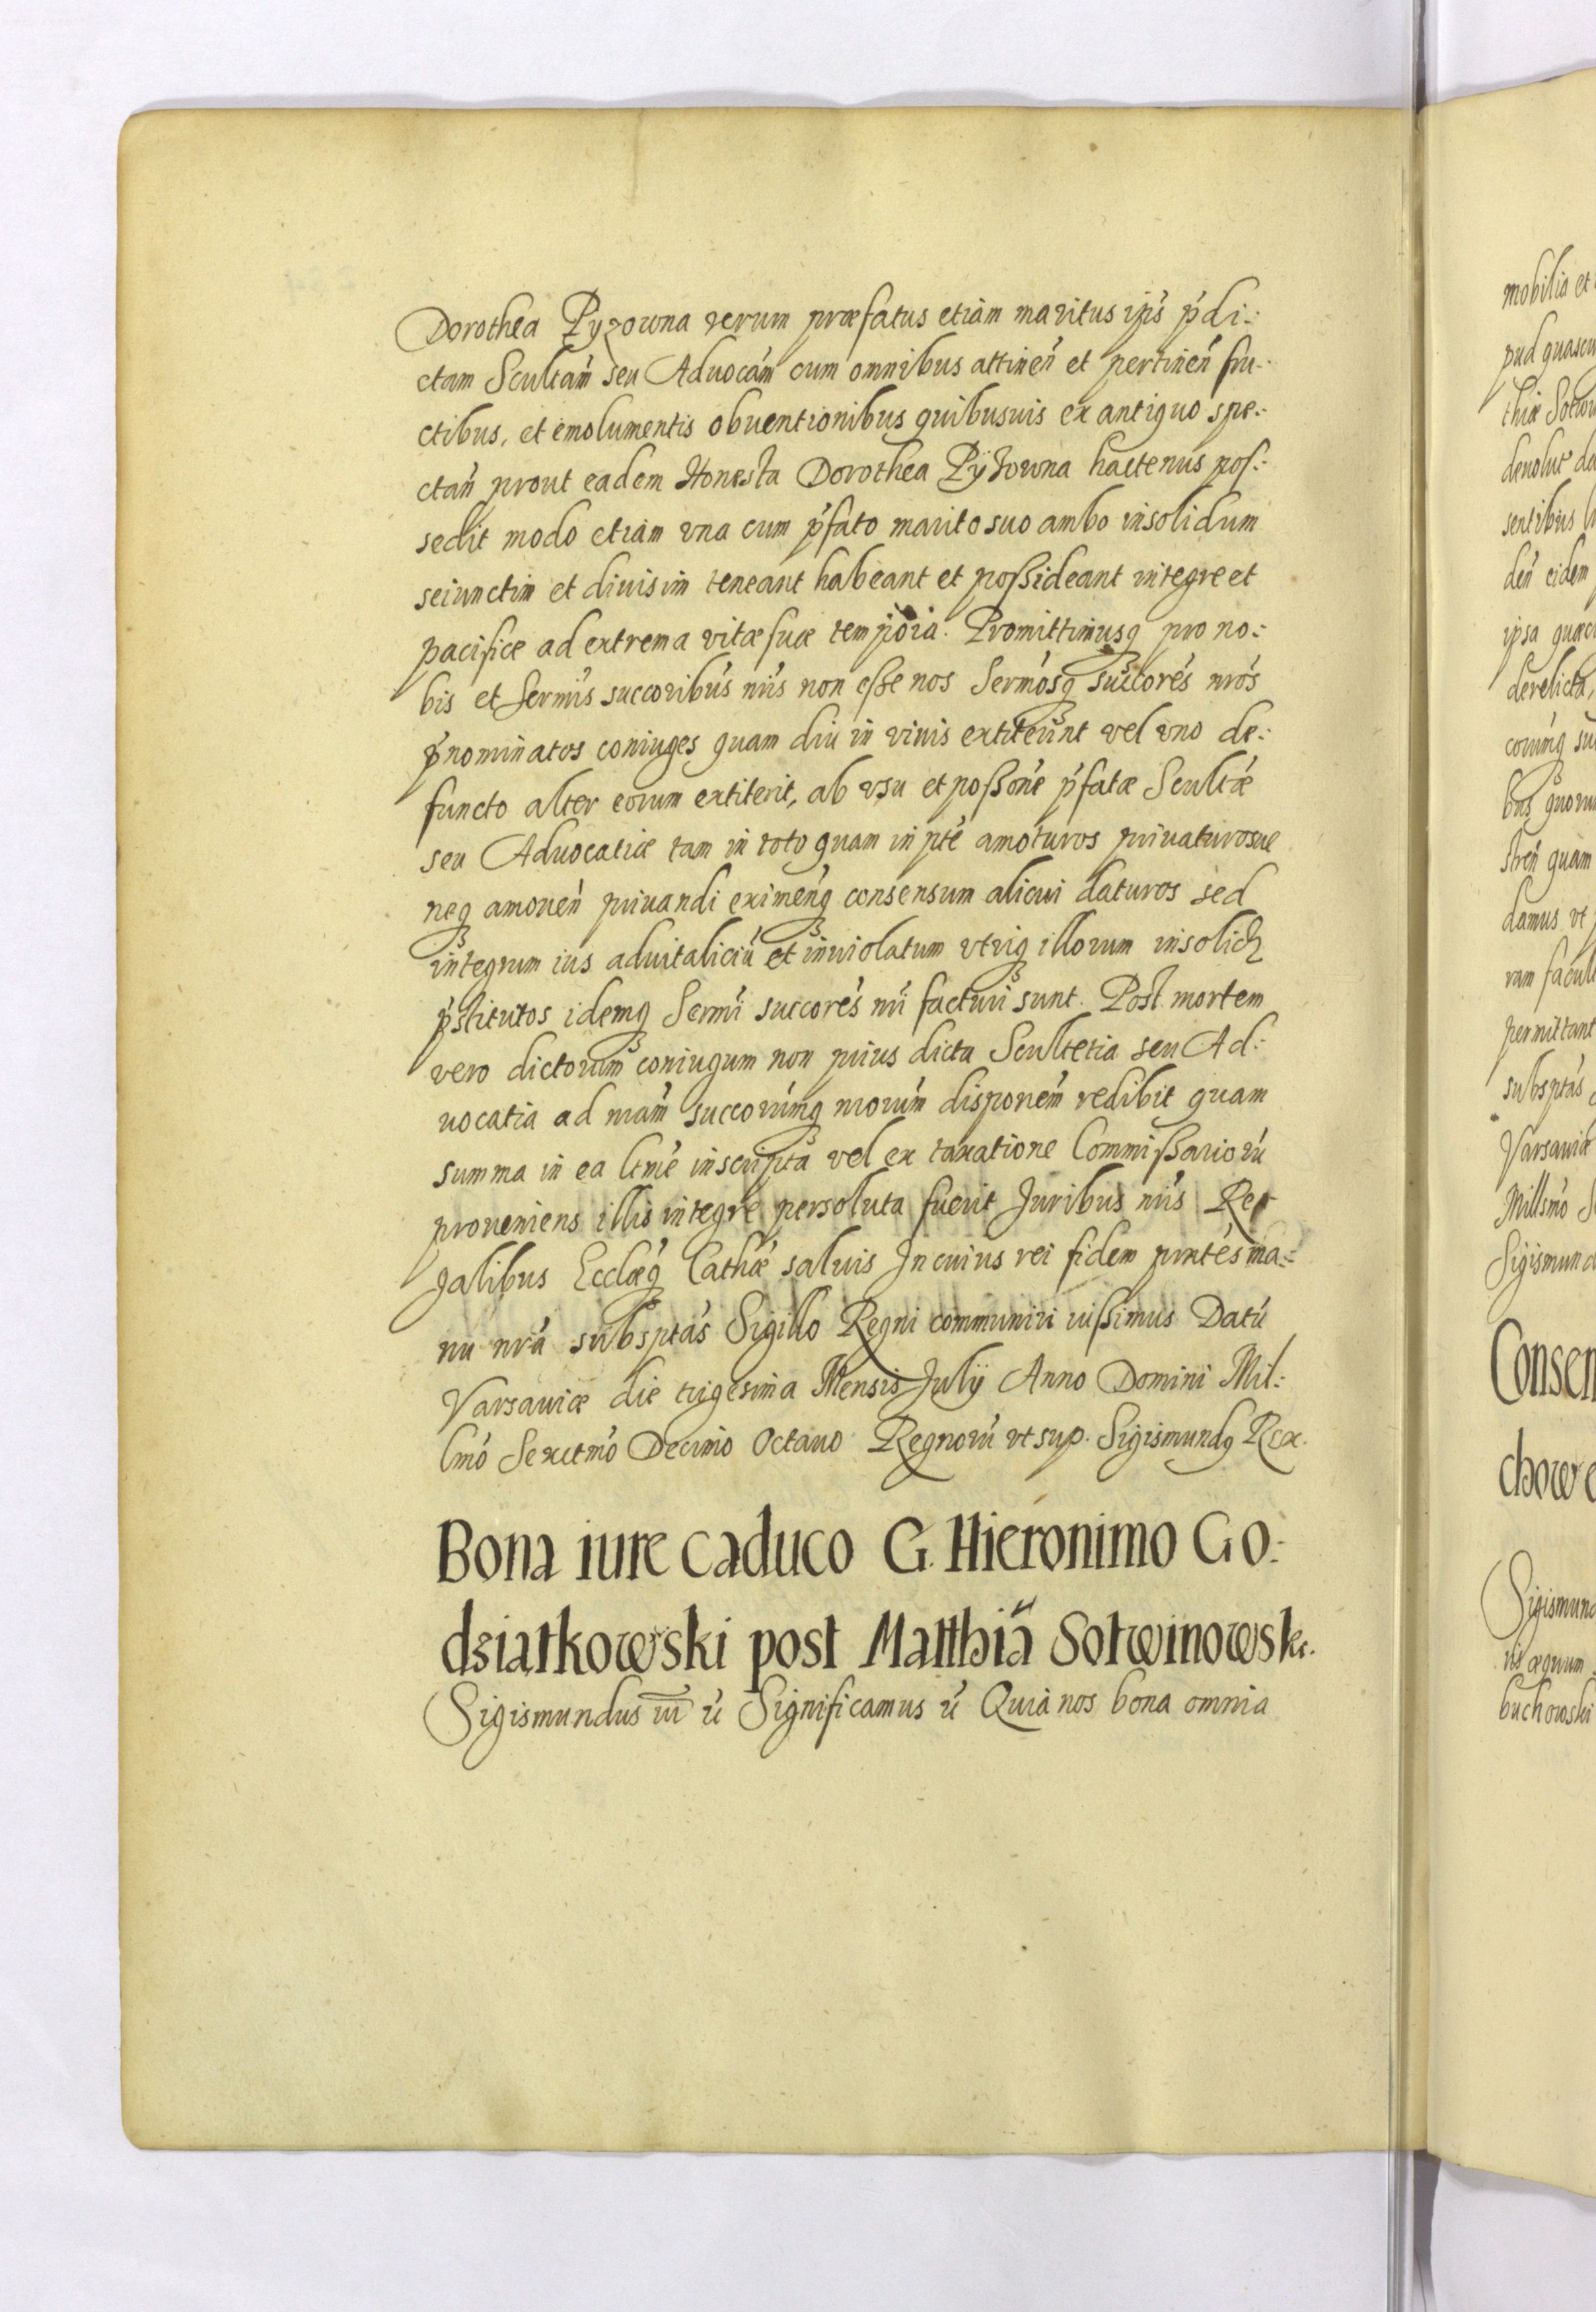 Dorothea Pyzowna verum præfatus etiam maritus ips̃ p̃di-:
ctam Scultam̃ seu Aduocam̃ cum omnibus attineñ et pertineñ fru-:
ctibus, et emolumentis obuentionibus quibusuis ex antiquo spe-:
ctañ prout eadem Honesta Dorothea Pÿzowna hactenus pos-:
sedit modo etiam vna cum p̃fato marito suo ambo insolidum
seiunctim et diuisim teneant habeant et poßideant integre et
pacifice ad extrema vitæ suæ tempora. Promittimusq₃ pro no-:
bis et Sermis̃ succoribus̃ nris̃ non eße nos Sermosq̃₃ succores̃ nros̃
p̃nominatos coniuges quam diu in viuis extiterint vel vno de-:
functo alter eorum extiterit, ab vsu et poßone̋ p̃fatæ Scultæ̃
seu Aduocatiæ tam in toto quam in pte̋ amoturos priuaturosue
neq₃ amoueñ priuandi eximeñq₃ consensum alicui daturos sed
integrum ius aduitaliciũ et inuiolatum vtriq₃ illorum insolid
p̃stitutos idemq₃ Sermi̋ succores̃ nri̋ facturi sunt. Post mortem
vero dictorum coniugum non prius dicta Scultetia seu Ad-:
uocatia ad nram̃ succorum̃q₃ nrorum̃ disponem̃ redibit quam
summa in ea ltme̋ inscripta vel ex taxatione Commißariorũ
proueniens illis integre persoluta fuerit Juribus nris̃ Re-
galibus Ecclæq̃₃ Cathæ̃ saluis In cuius rei fidem prntes̃ ma-:
nu nra̋ subsptas̃ Sigillo Regni communiri iußimus Datũ
Varsauiæ die trigesima Mensis Julÿ Anno Domini Mil-:
lmő Sexctmő Decimo Octauo Regnorũ vt sup. Sigismundq Rex.
Bona iure caduco G. Hieronimo Go-:
dziątkowski post Matthiã Sotwinowsk.
Sigismundus III r̃ Significamus r̃ Quia nos bona omnia
mobilia et
denolut
sentibus
deñ eidem
derelicta,
bus quorum
streñ quam
damus vt
permittant
subsptas̃
Varsauiæ
Millsmő
Consen
chowe
nis æquum
buchowski